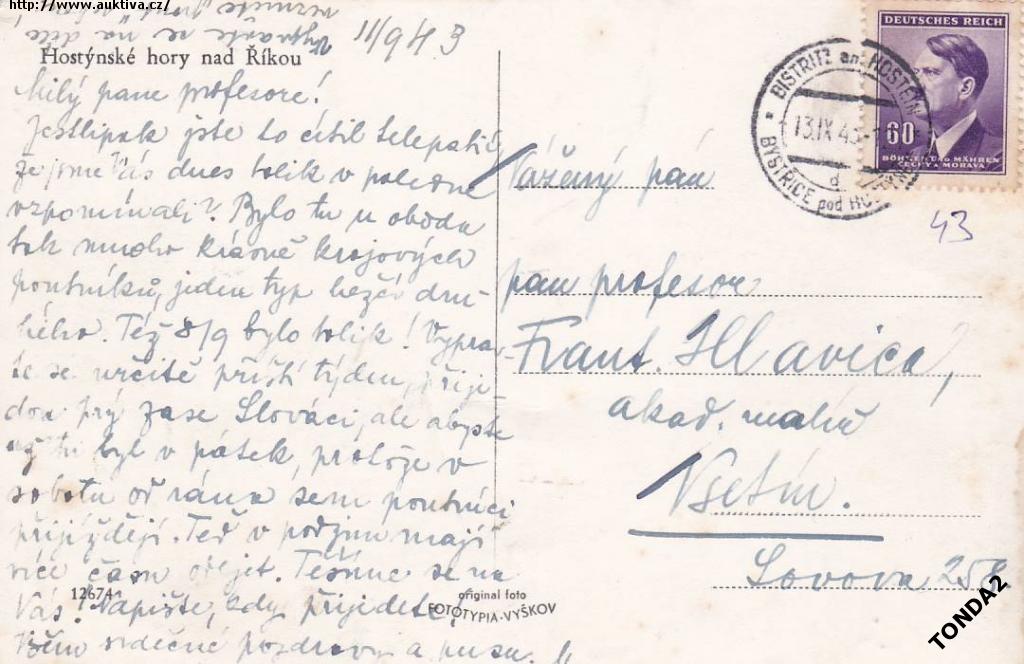 http://www.auktiva.cz/
Vypravte se na déle
11/9 43
Hostýnské hory nad Říkou
Milý pane profesore!
Jestlipak jste to cítil telepatič.
že jsme Vás dnes tolik v poledne
vzpomínali? Bylo tu u oběda
tak mnoho krásně krojových
poutníků, jeden typ hezčí dru-
hého. Též 8/9 bylo tolik! Vyprav-
te se určitě příští týden, přije-
dou prý zase Slováci, ale abyste
už tu byl v pátek, protože v
sobotu od rána sem poutníci
přijíždějí. Teď v podzimu mají
více času odejít. Těšíme se na
Vás! Napište, kdy přijedete.
Všem srdečné pozdravy a
12674
original foto
FOTOTYPIA-VYŠKOV
DEUTSCHES REICH
60
BÖHMEN UND MÄHREN
ČECHY A MORAVA
BISTRITZ am HOSTEIN
13.IX.43
d
BYSTŘICE pod HOSTÝNEM
43
Vážený pán
pan profesor
Frant. Hlavica,
akad. malíř
Vsetín.
TONDA2